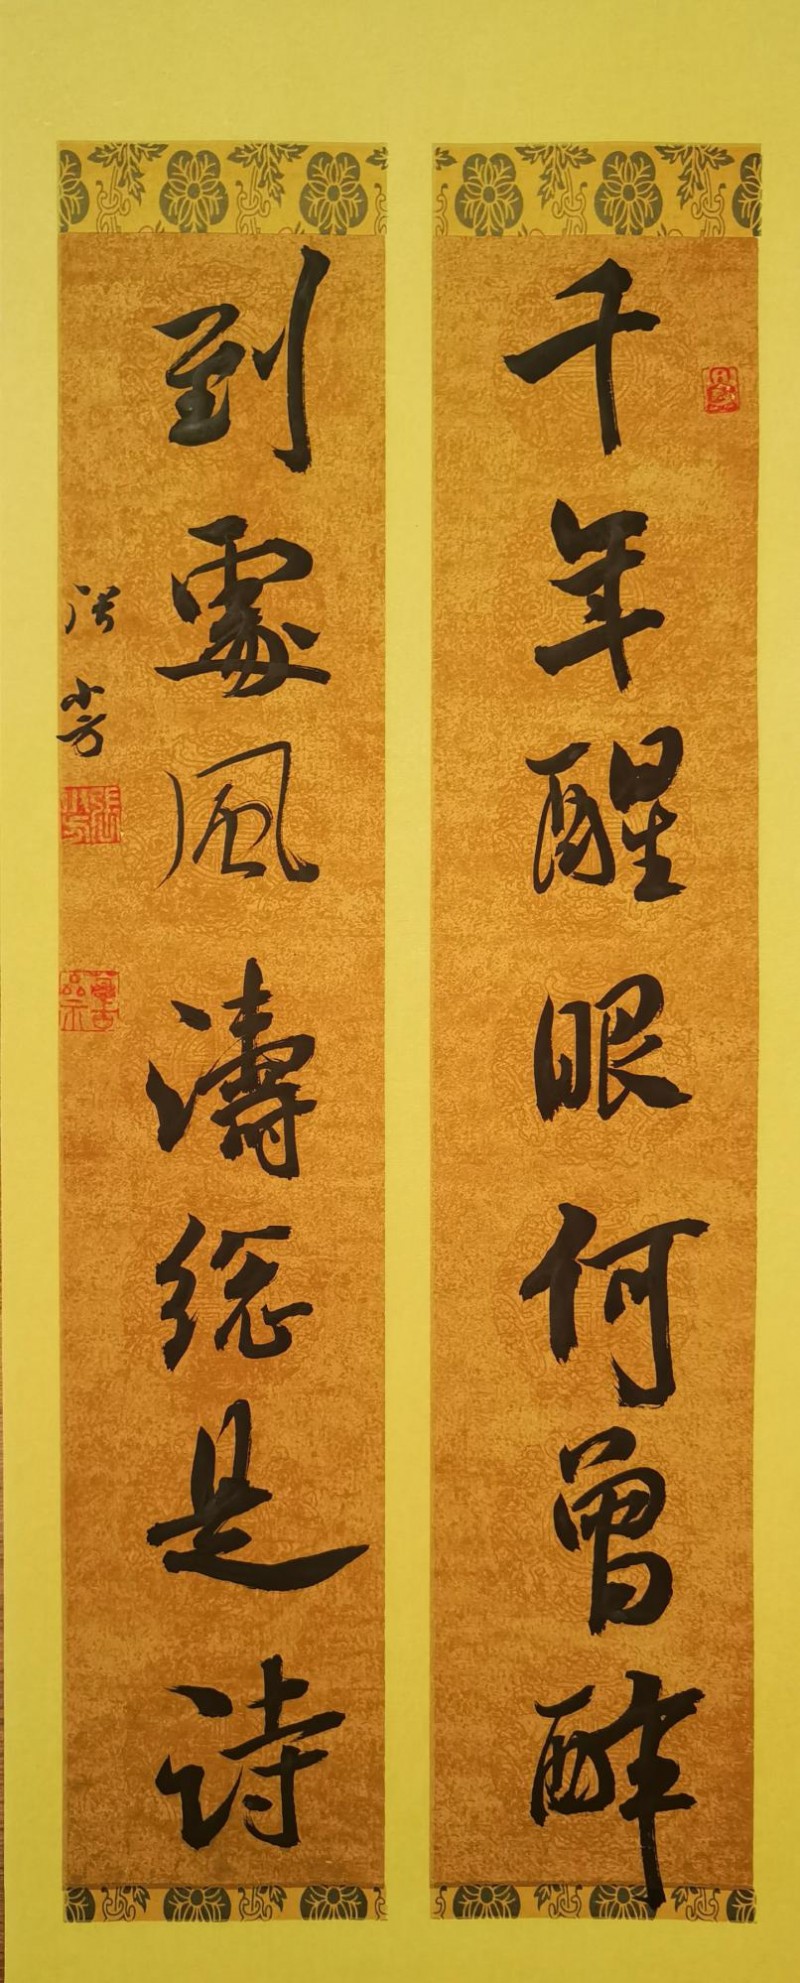 千年醒眼何曾醉
到處風濤總是詩
張小芳